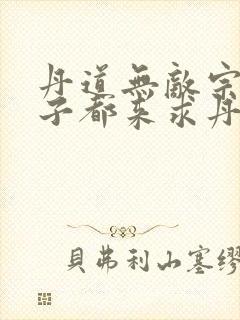 丹道無敵宗
子都來求丹
貝弗利山塞繆